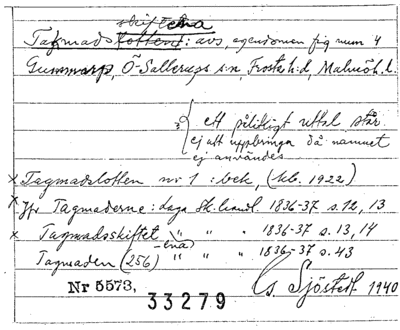 skiftena
Tagmadslotten: avs. egendomen fig num 4
Gummarp, Ö-Sallerups sn, Frosta h:d, Malmöh. l.
ett pålitligt uttal står
ej att uppbringa då namnet
ej användes
× Tagmadslotten nr 1 : bek, (kb. 1922)
× Jfr Tagmaderne: daga sk. handl. 1836-37 s. 12, 13
× Tagmadsskiftet " " " 1836-37 s. 13, 14
-ena
Tagmaden (256) " " " 1836-37 s. 43
Nr 5573, G. Sjöstedt 1940
33279